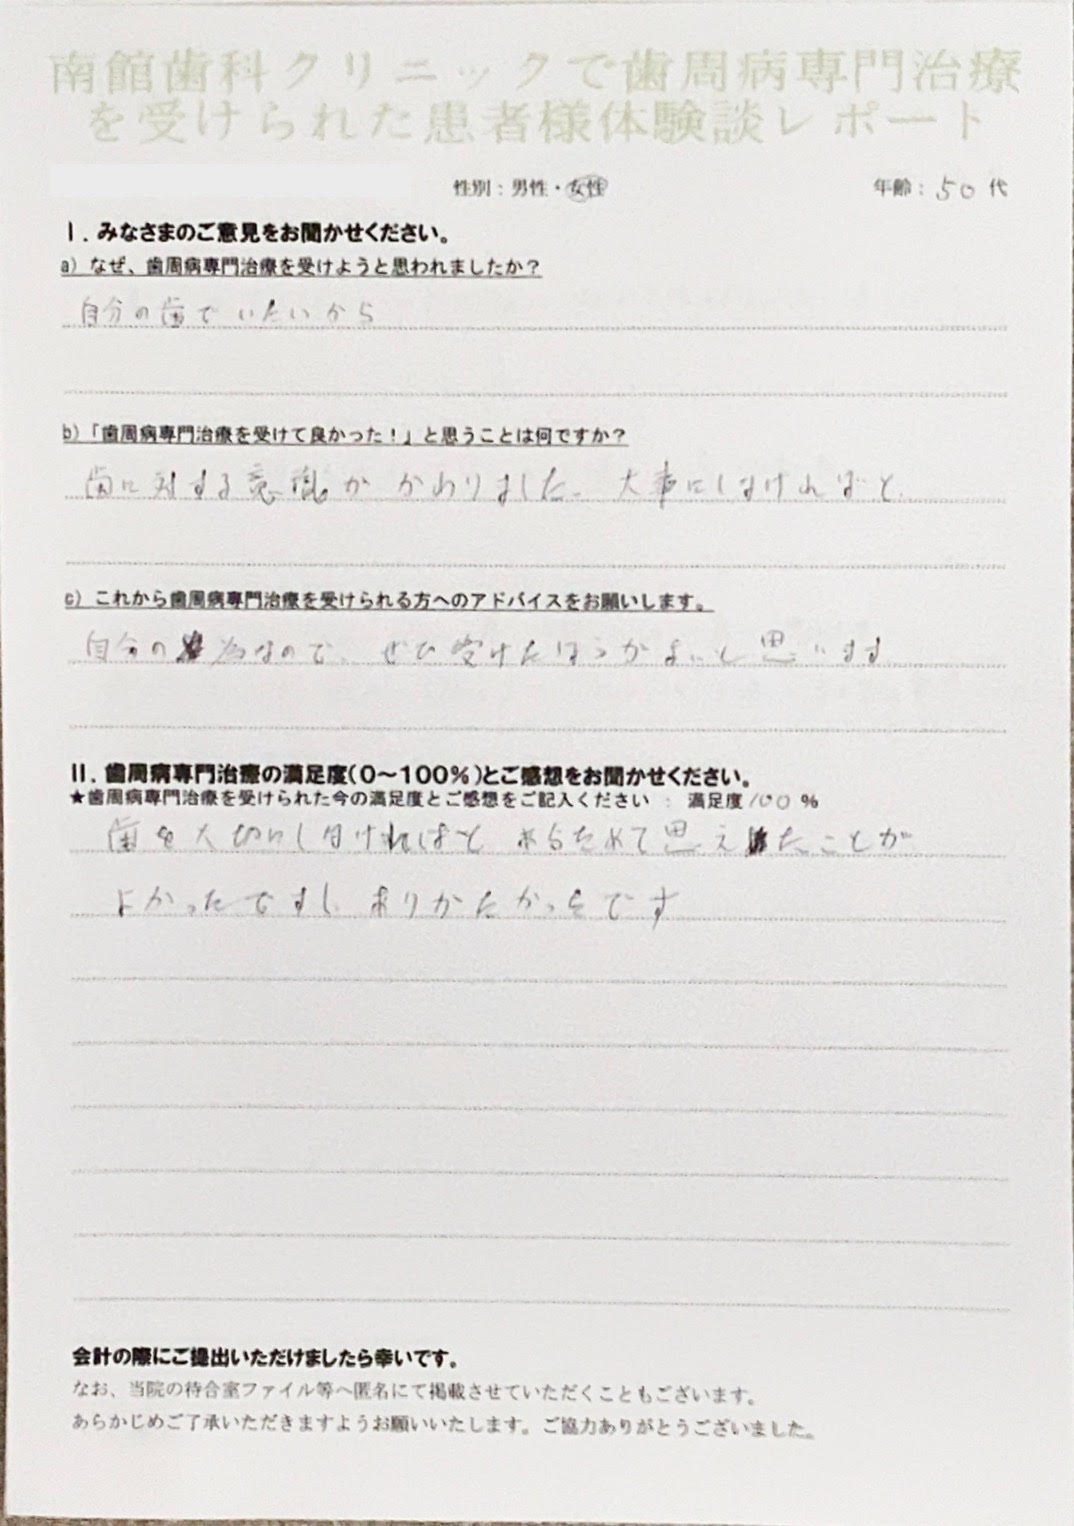 南館歯科クリニックで歯周病専門治療
を受けられた患者様体験談レポート
性別：男性・女性 年齢：50 代
Ⅰ．みなさまのご意見をお聞かせください。
a）なぜ、歯周病専門治療を受けようと思われましたか？
自分の歯でいたいから
b）「歯周病専門治療を受けて良かった！」と思うことは何ですか？
歯に対する意識が かわりました。大事にしなければと。
c）これから歯周病専門治療を受けられる方へのアドバイスをお願いします。
自分の為なので、ぜひ受けたほうがよいと思います
Ⅱ．歯周病専門治療の満足度（0～100％）とご感想をお聞かせください。
★歯周病専門治療を受けられた今の満足度とご感想をご記入ください ： 満足度 100 ％
歯を大切にしなければと あらためて思えたことが
よかったですし、ありがたかったです
会計の際にご提出いただけましたら幸いです。
なお、当院の待合室ファイル等へ匿名にて掲載させていただくこともございます。
あらかじめご了承いただきますようお願いいたします。ご協力ありがとうございました。